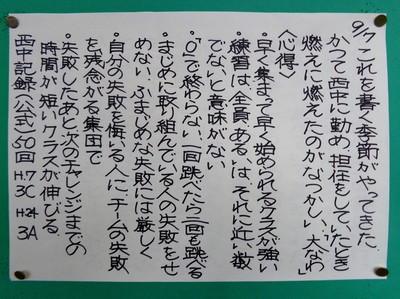 9/7 これを書く季節がやってきた
かつて西中に勤め、担任をしていたとき
燃えに燃えたのがなつかしい「大なわ」
〈心得〉
・早く集まって早く始められるクラスが強い
・練習は、全員、あるいは、それに近い数
でないと意味がない
・「0」で終わらない、一回跳べたら二回も跳べる
・まじめに取り組んでいる人の失敗をせ
めない、ふまじめな失敗には厳しく
・自分の失敗を悔いる人に、チームの失敗
を残念がる集団で
・失敗したあと次のチャレンジまでの
時間が短いクラスが伸びる
西中記録(公式)50回 H.7 3C H24 3A